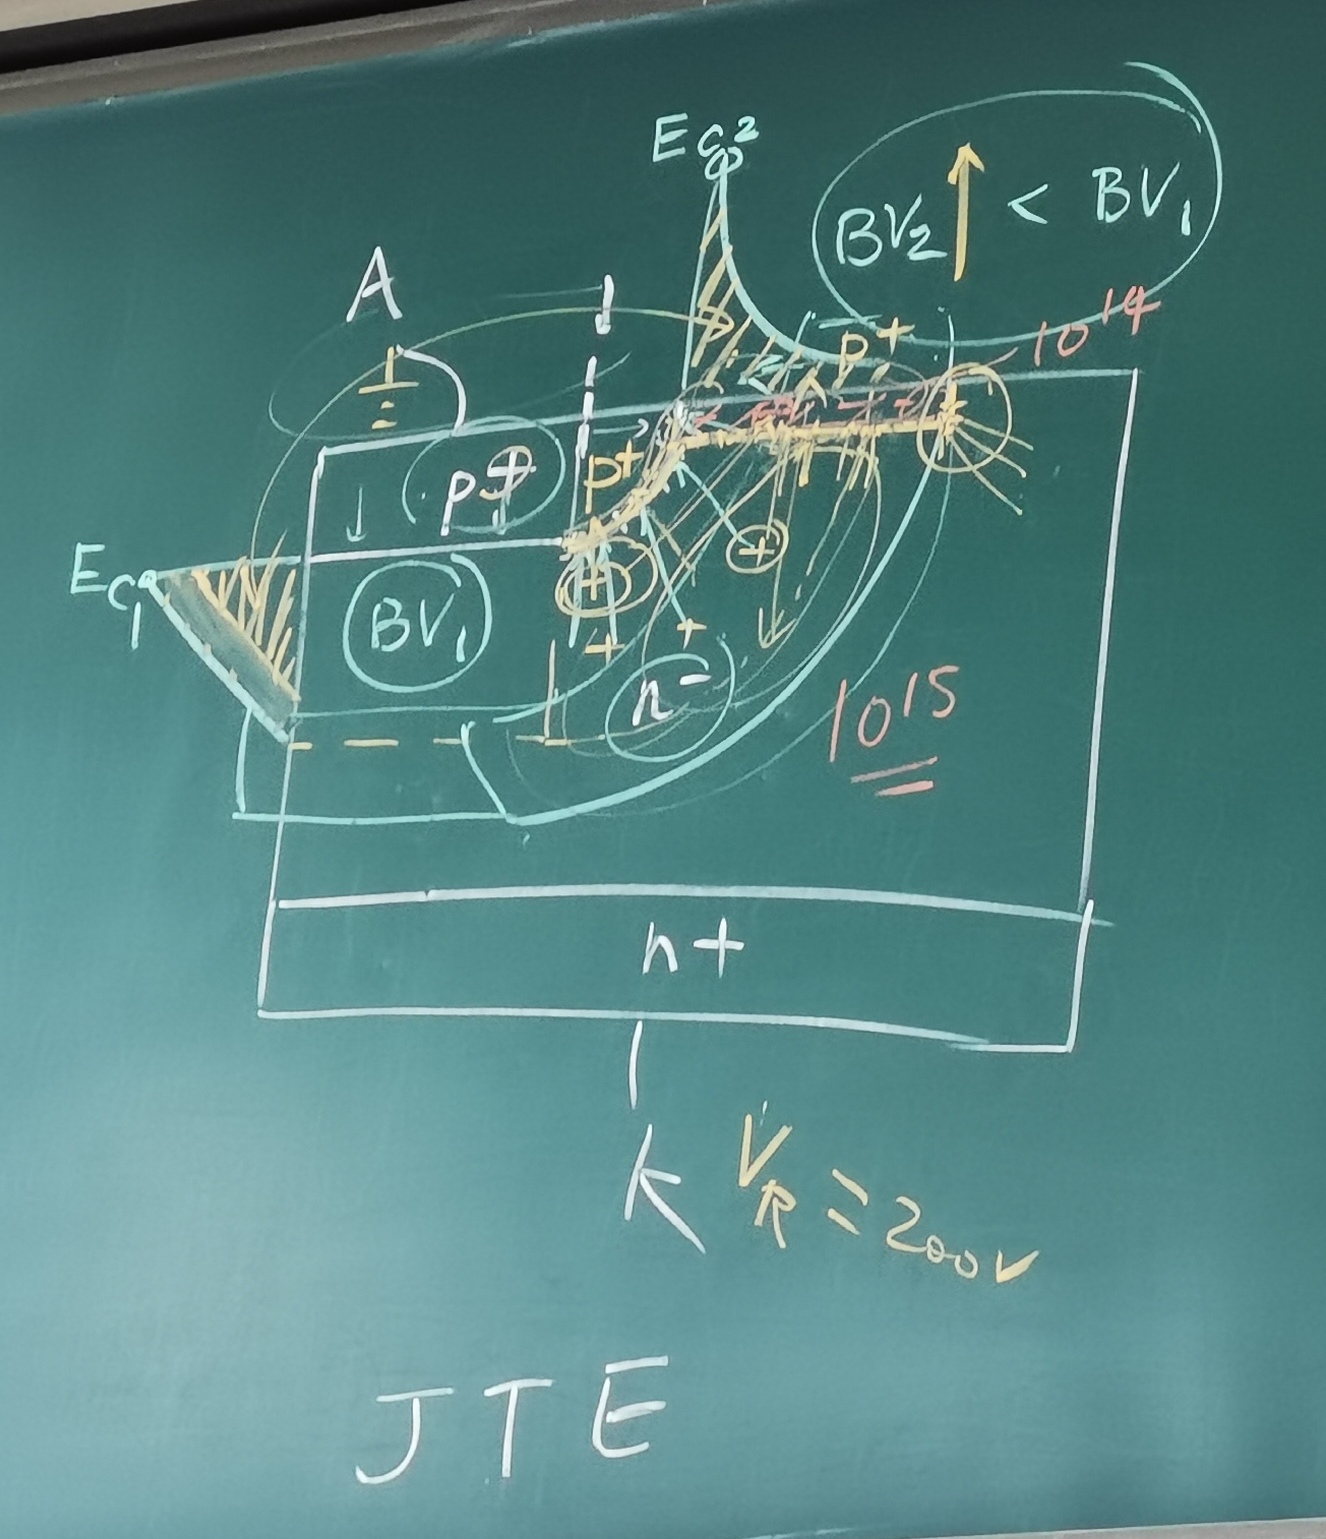 Ec2
BV2 ↑ < BV1
A
p+
10^14
p+
p+
Ec1
BV1
+
+
+
+
n-
10^15
n+
K
VR = 200V
JTE